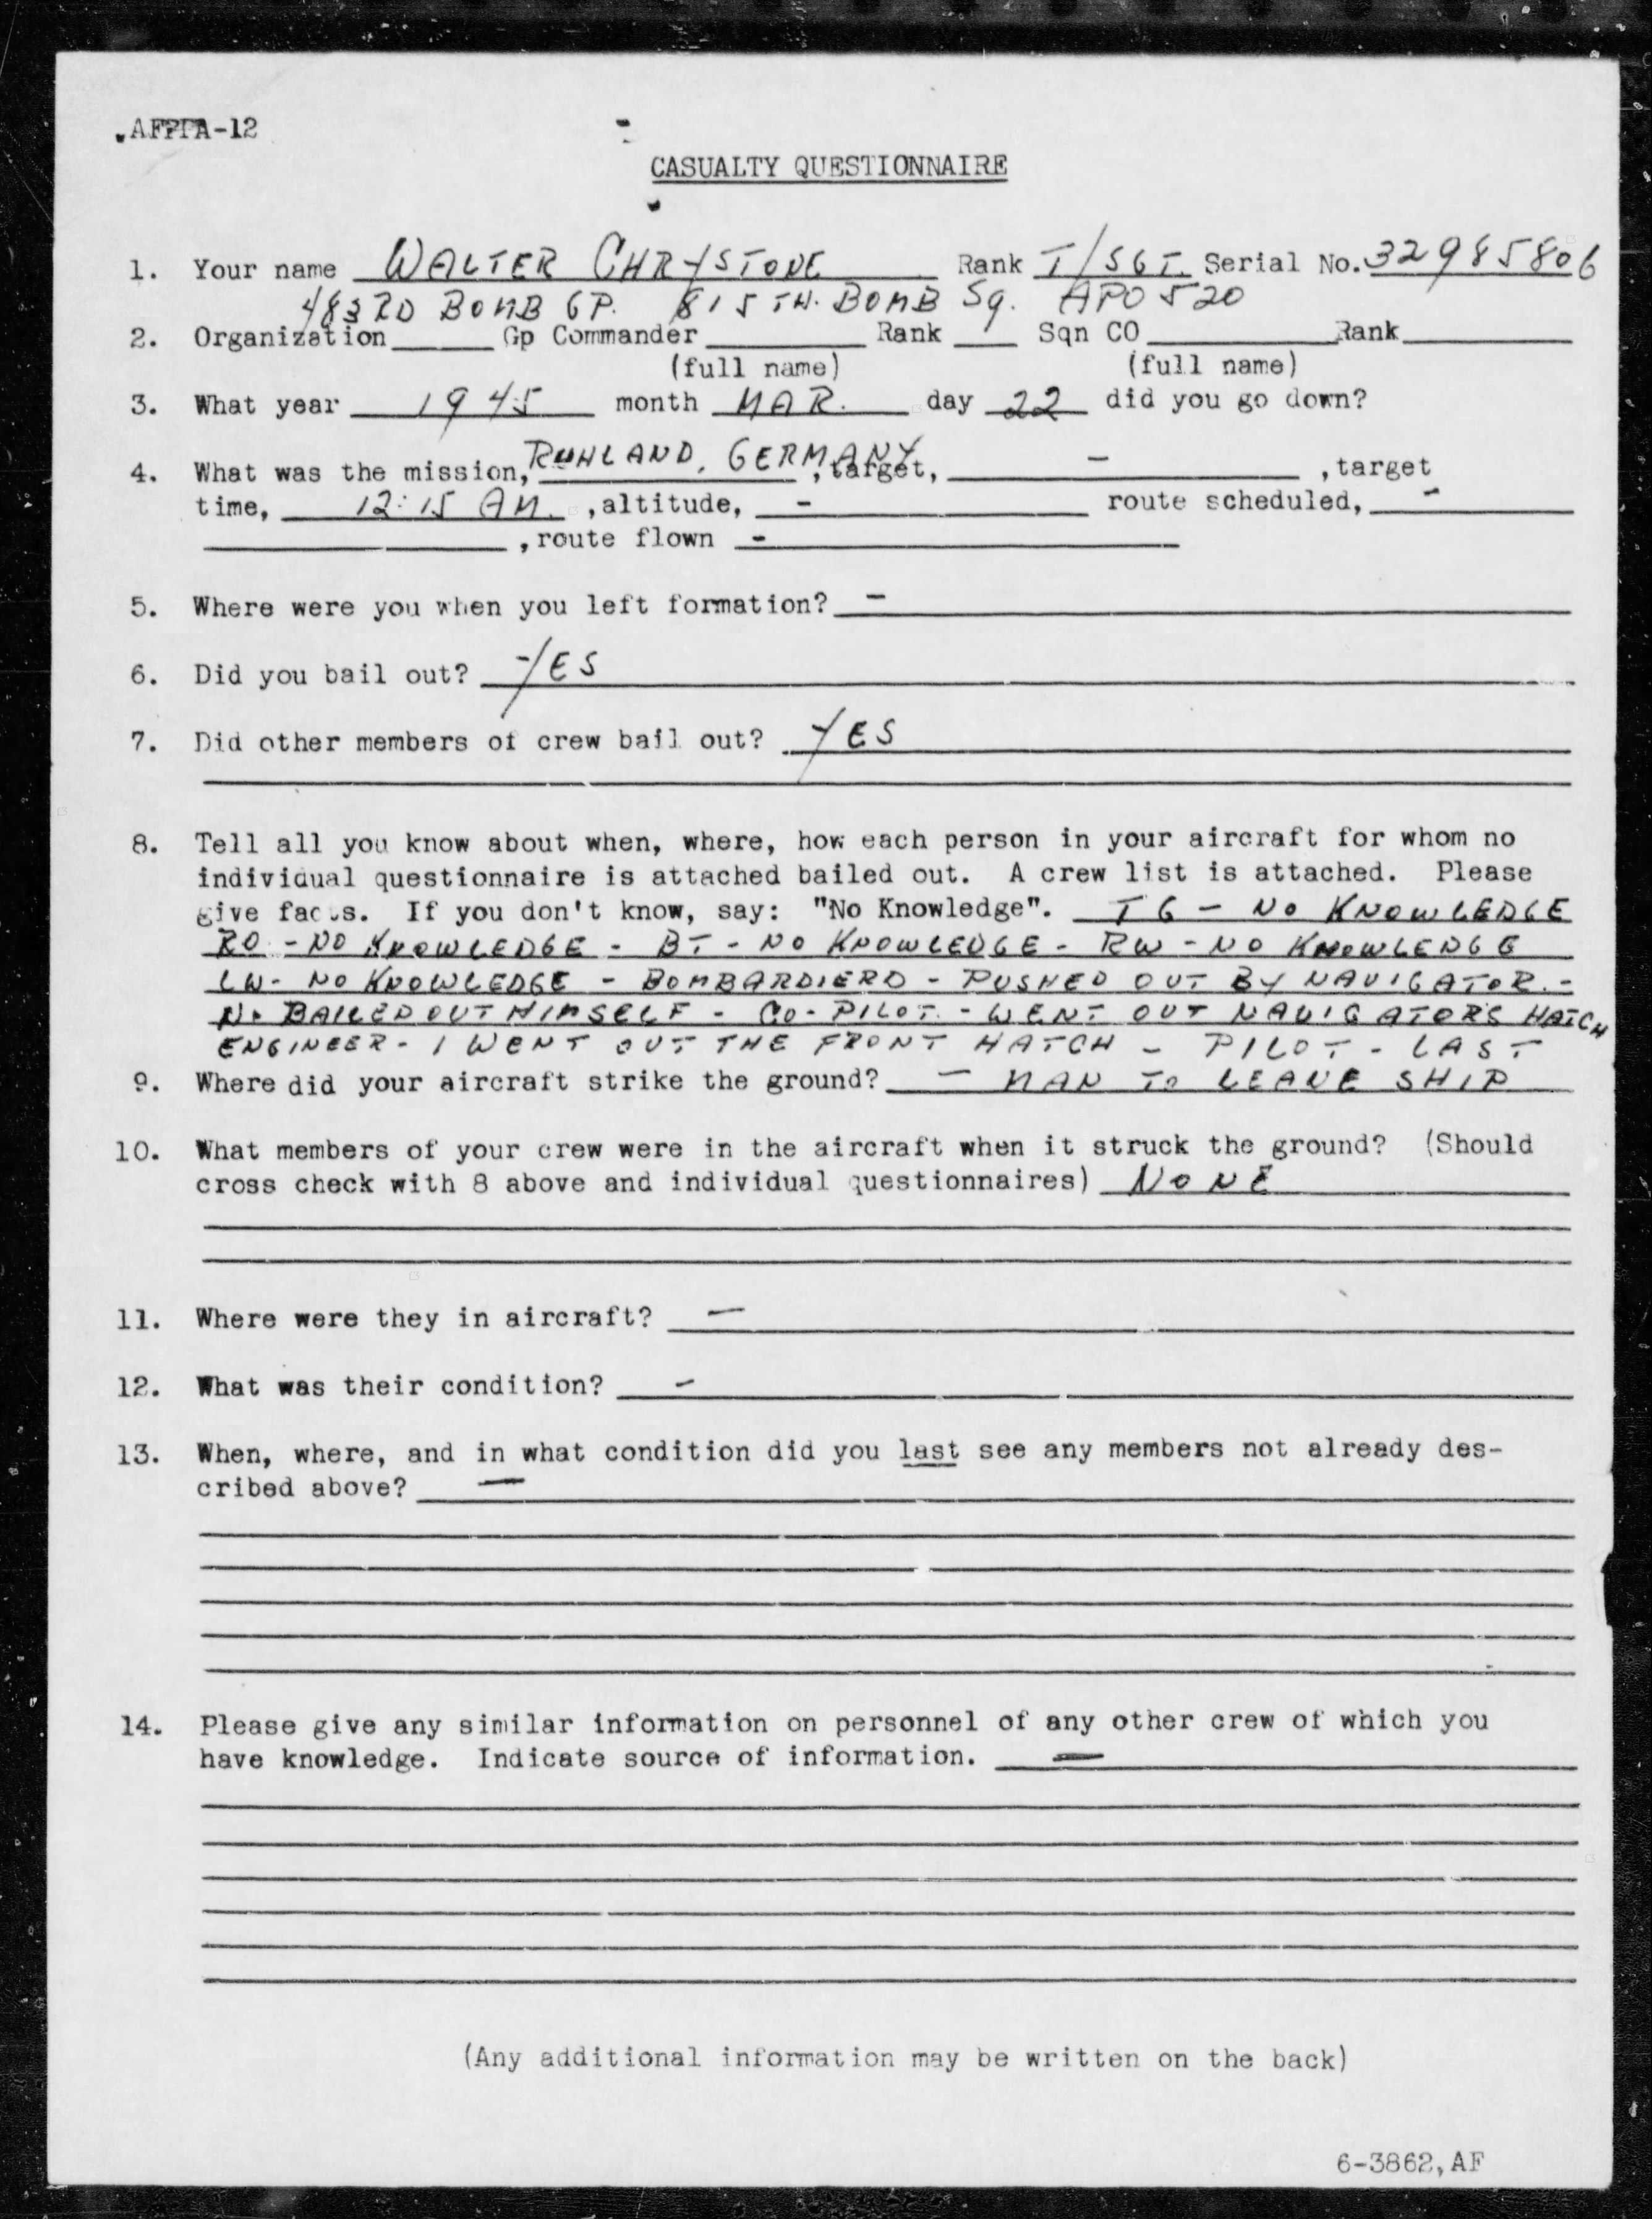 AFPPA-12
CASUALTY QUESTIONNAIRE
1. Your name WALTER CHRYSTONE Rank T/SGT. Serial No. 32985806
483RD BOMB GP. 815TH. BOMB Sq. APO 520
2. Organization Gp Commander Rank Sqn CO Rank
(full name) (full name)
3. What year 1945 month MAR. day 22 did you go down?
4. What was the mission, RUHLAND, GERMANY, target, - , target
time, 12:15 AM. , altitude, - route scheduled, -
, route flown -
5. Where were you when you left formation? -
6. Did you bail out? YES
7. Did other members of crew bail out? YES
8. Tell all you know about when, where, how each person in your aircraft for whom no
individual questionnaire is attached bailed out. A crew list is attached. Please
give facts. If you don't know, say: "No Knowledge". TG - NO KNOWLEDGE
RO - NO KNOWLEDGE - BT - NO KNOWLEDGE - RW - NO KNOWLENGE
LW - NO KNOWLEDGE - BOMBARDIERD - PUSHED OUT BY NAVIGATOR. -
N. BAILED OUT HIMSELF - CO-PILOT - WENT OUT NAVIGATORS HATCH
ENGINEER - I WENT OUT THE FRONT HATCH - PILOT - LAST
9. Where did your aircraft strike the ground? - MAN TO LEAVE SHIP
10. What members of your crew were in the aircraft when it struck the ground? (Should
cross check with 8 above and individual questionnaires) NONE
11. Where were they in aircraft? -
12. What was their condition? -
13. When, where, and in what condition did you last see any members not already des-
cribed above? -
14. Please give any similar information on personnel of any other crew of which you
have knowledge. Indicate source of information. -
(Any additional information may be written on the back)
6-3862, AF